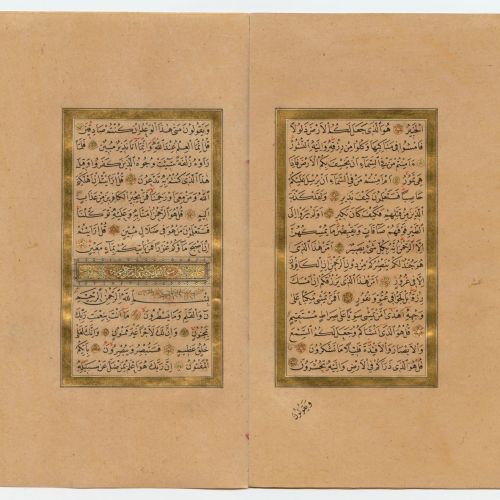 الْخَبِيرُ هُوَ الَّذِي جَعَلَ لَكُمُ الْاَرْضَ ذَلُولًا
فَامْشُوا فِي مَنَاكِبِهَا وَكُلُوا مِنْ رِزْقِهِ وَاِلَيْهِ النُّشُورُ
ءَاَمِنْتُمْ مَنْ فِي السَّمَاءِ اَنْ يَخْسِفَ بِكُمُ الْاَرْضَ فَاِذَا
هِيَ تَمُورُ اَمْ اَمِنْتُمْ مَنْ فِي السَّمَاءِ اَنْ يُرْسِلَ عَلَيْكُمْ
حَاصِبًا فَسَتَعْلَمُونَ كَيْفَ نَذِيرِ وَلَقَدْ كَذَّبَ
الَّذِينَ مِنْ قَبْلِهِمْ فَكَيْفَ كَانَ نَكِيرِ اَوَلَمْ يَرَوْا اِلَى
الطَّيْرِ فَوْقَهُمْ صَافَّاتٍ وَيَقْبِضْنَ مَا يُمْسِكُهُنَّ
اِلَّا الرَّحْمٰنُ اِنَّهُ بِكُلِّ شَيْءٍ بَصِيرٌ اَمَّنْ هٰذَا الَّذِي
هُوَ جُنْدٌ لَكُمْ يَنْصُرُكُمْ مِنْ دُونِ الرَّحْمٰنِ اِنِ الْكَافِرُونَ
اِلَّا فِي غُرُورٍ اَمَّنْ هٰذَا الَّذِي يَرْزُقُكُمْ اِنْ اَمْسَكَ
رِزْقَهُ بَلْ لَجُّوا فِي عُتُوٍّ وَنُفُورٍ اَفَمَنْ يَمْشِي مُكِبًّا عَلٰى
وَجْهِهِ اَهْدٰى اَمَّنْ يَمْشِي سَوِيًّا عَلٰى صِرَاطٍ مُسْتَقِيمٍ
قُلْ هُوَ الَّذِي اَنْشَاَكُمْ وَجَعَلَ لَكُمُ السَّمْعَ
وَالْاَبْصَارَ وَالْاَفْئِدَةَ قَلِيلًا مَا تَشْكُرُونَ
قُلْ هُوَ الَّذِي ذَرَاَكُمْ فِي الْاَرْضِ وَاِلَيْهِ تُحْشَرُونَ
وَيَقُولُونَ
وَيَقُولُونَ مَتٰى هٰذَا الْوَعْدُ اِنْ كُنْتُمْ صَادِقِينَ
قُلْ اِنَّمَا الْعِلْمُ عِنْدَ اللّٰهِ وَاِنَّمَا اَنَا نَذِيرٌ مُبِينٌ
فَلَمَّا رَاَوْهُ زُلْفَةً سِيئَتْ وُجُوهُ الَّذِينَ كَفَرُوا وَقِيلَ
هٰذَا الَّذِي كُنْتُمْ بِهِ تَدَّعُونَ قُلْ اَرَاَيْتُمْ اِنْ اَهْلَكَنِيَ
اللّٰهُ وَمَنْ مَعِيَ اَوْ رَحِمَنَا فَمَنْ يُجِيرُ الْكَافِرِينَ مِنْ عَذَابٍ
اَلِيمٍ قُلْ هُوَ الرَّحْمٰنُ اٰمَنَّا بِهِ وَعَلَيْهِ تَوَكَّلْنَا
فَسَتَعْلَمُونَ مَنْ هُوَ فِي ضَلَالٍ مُبِينٍ قُلْ اَرَاَيْتُمْ
اِنْ اَصْبَحَ مَاؤُكُمْ غَوْرًا فَمَنْ يَأْتِيكُمْ بِمَاءٍ مَعِينٍ
بِسْمِ اللّٰهِ الرَّحْمٰنِ الرَّحِيمِ
ن وَالْقَلَمِ وَمَا يَسْطُرُونَ مَا اَنْتَ بِنِعْمَةِ رَبِّكَ
بِمَجْنُونٍ وَاِنَّ لَكَ لَاَجْرًا غَيْرَ مَمْنُونٍ وَاِنَّكَ لَعَلٰى
خُلُقٍ عَظِيمٍ فَسَتُبْصِرُ وَيُبْصِرُونَ بِاَيِّكُمُ
الْمَفْتُونُ اِنَّ رَبَّكَ هُوَ اَعْلَمُ بِمَنْ ضَلَّ عَنْ سَبِيلِهِ